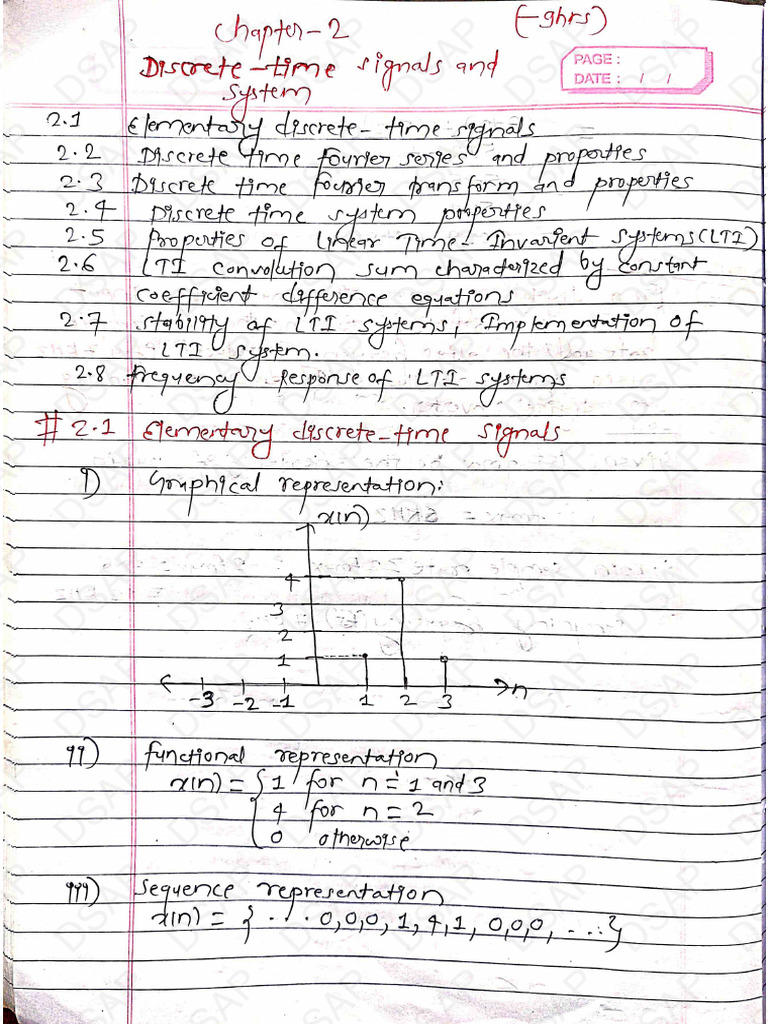 Chapter-2 (-9hrs)
Discrete-time signals and
system
PAGE :
DATE : / /
2.1 Elementary discrete-time signals
2.2 Discrete time fourier series and properties
2.3 Discrete time fourier transform and properties
2.4 Discrete time system properties
2.5 Properties of Linear Time-Invarient systems(LTI)
2.6 LTI convolution sum characterized by constant
coefficient difference equations
2.7 stability of LTI systems, Implementation of
LTI system.
2.8 frequency Response of LTI systems
# 2.1 Elementary discrete-time signals
I) Graphical representation:
x(n)
4
3
2
1
-3 -2 -1 1 2 3 n
II) functional representation
x(n) = { 1 for n = 1 and 3
4 for n = 2
0 otherwise
III) sequence representation
x(n) = { ... 0,0,0,1,4,1,0,0,0, ... }
DSAP